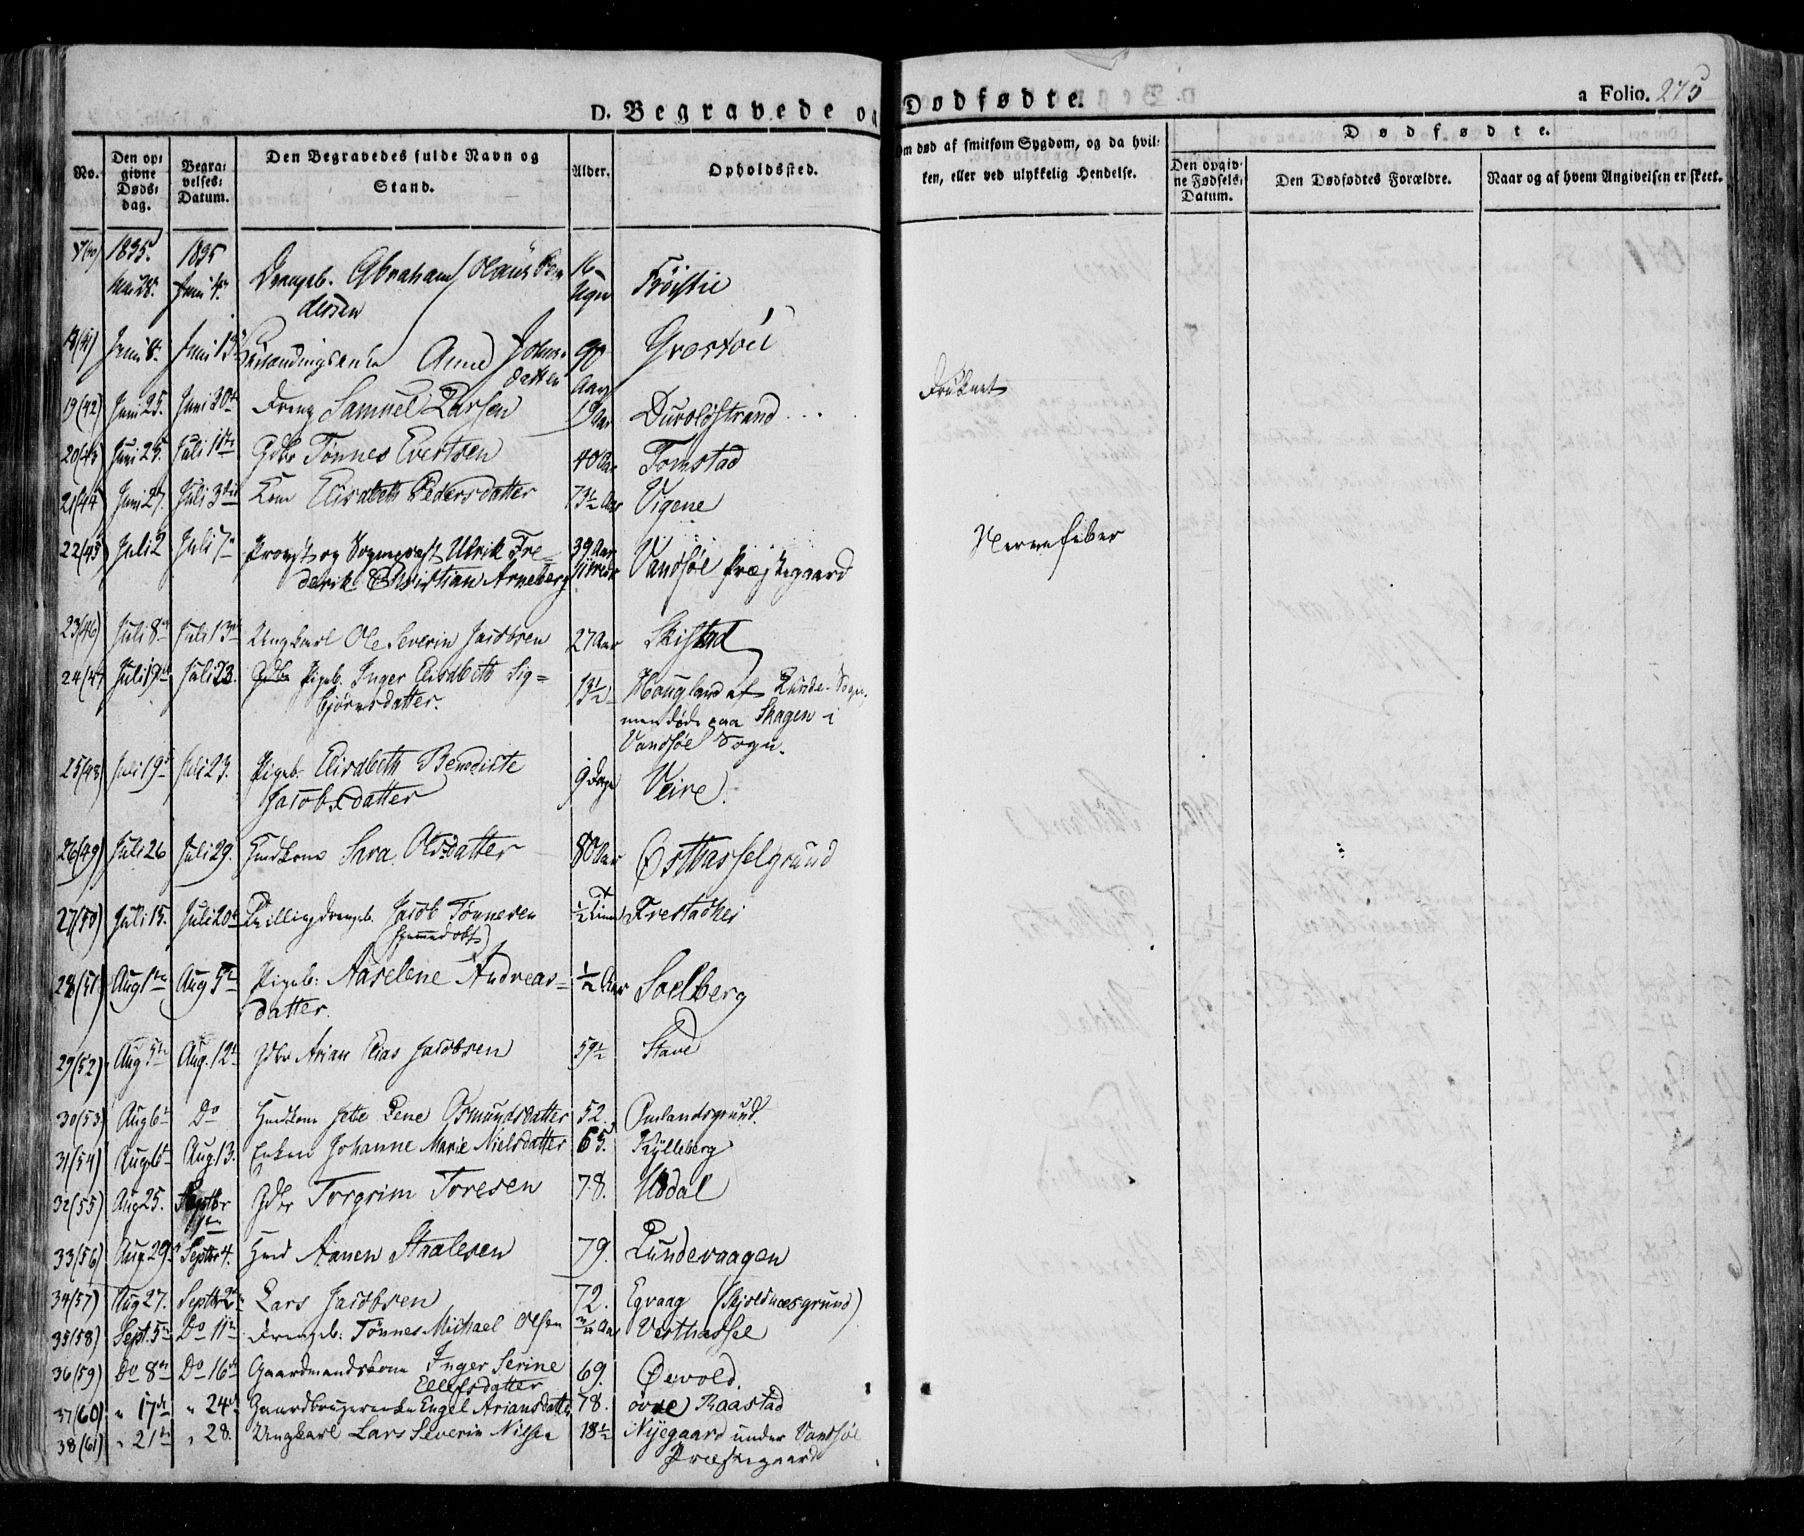 D. Begravede og Dødfødte. a Folio. 275
No. Den opgivne Dødsdag. Begravelses-Datum. Den Begravedes fulde Navn og Stand. Alder. Opholdssted. Om død af smitsom Sygdom, og da hvilken, eller ved ulykkelig Hendelse. Dødfødte. Den opgivne Fødsels-Datum. Den Dødfødtes Forældre. Naar og af hvem Angivelsen er skeet.
1835. 1835
Mai 28. Juni 4. Drengb. Abraham Olaus Pe
dersen 16 Uger Fröstie
18(41) Juni 8. Juni 13 Anne Johns-
datter 90 Aar Græstöel
19(42) Juni 25. Juni 30te Dreng Samuel Larsen 19 Aar Dursløstrand Druknet
20(43) Juni 25. Juli 1ste Gdbr Tønnes Evertsen 40 Aar Tomstad
21(44) Juni 27. Juli 3die Kone Elisabeth Pedersdatter 73½ Aar Vigene
22(45) Juli 2 Juli 7de Provst og Sognepræst Ulrik Fre-
derik Christian Arneberg 39 Aar Vandsøe Præstegaard Nervefeber
23(46) Juli 8de Juli 13de Ungkarl Ole Severin Jacobsen 27 Aar Skistad
24(47) Juli 19de Juli 23. Pigeb. Inger Elisabeth Sig-
bjørnsdatter. 13½ Haugland af Lunde Sogn,
men døde paa Skagen i
Vandsøe Sogn.
25(48) Juli 19de Juli 23. Pigeb. Elisabeth Benedicte
Jacobsdatter 9 Dage Veire.
26(49) Juli 26 Juli 29. Huskone Sara Olsdatter 80 Aar Østhasselgrund
27(50) Juli 15. Juli 20de Tvillingdrengeb. Jacob Tønnesen
(hjemmedøbt) ½ Time Frestadhei
28(51) Aug 1ste Aug 5te Pigeb: Aaselene Andreas-
datter. ½ Aar Soelberg
29(52) Aug 5te Aug. 12te Gdbr Arian Elias Jacobsen 59½ Stave
30(53) Aug 6te Do Huskone Jette Lene Osmundsdatter 52. Omlandsgrund.
31(54) Aug 6te Aug. 13. Enken Johanne Marie Nielsdatter 65. Kylleberg
32(55) Aug 25. Septbr 1ste Gdbr Torgrim Toresen 78. Uddal
33(56) Aug 29. Septbr 4. Husmd Aanen Staalesen 79. Lundevaagen
34(57) Aug 27. Septbr 2den Lars Jacobsen 72. Egvaag (Skjoldnæsgrund)
35(58) Sept. 5te Do 11te Drengeb: Tønnes Michael Olsen ¾ Aar Vesthassel
36(59) Do 8de Do 16de Gaardmandskone Inger Serine
Ellefsdatter 69. Øevold.
37(60) " 17de " 24de Gaardbrugerenke Engel Ariansdatter 78. øvre Raastad
38(61) " 21de " 28. Ungkarl Lars Severin Nilsen 18½ Nyegaard under Vandsøe
Præstegaard